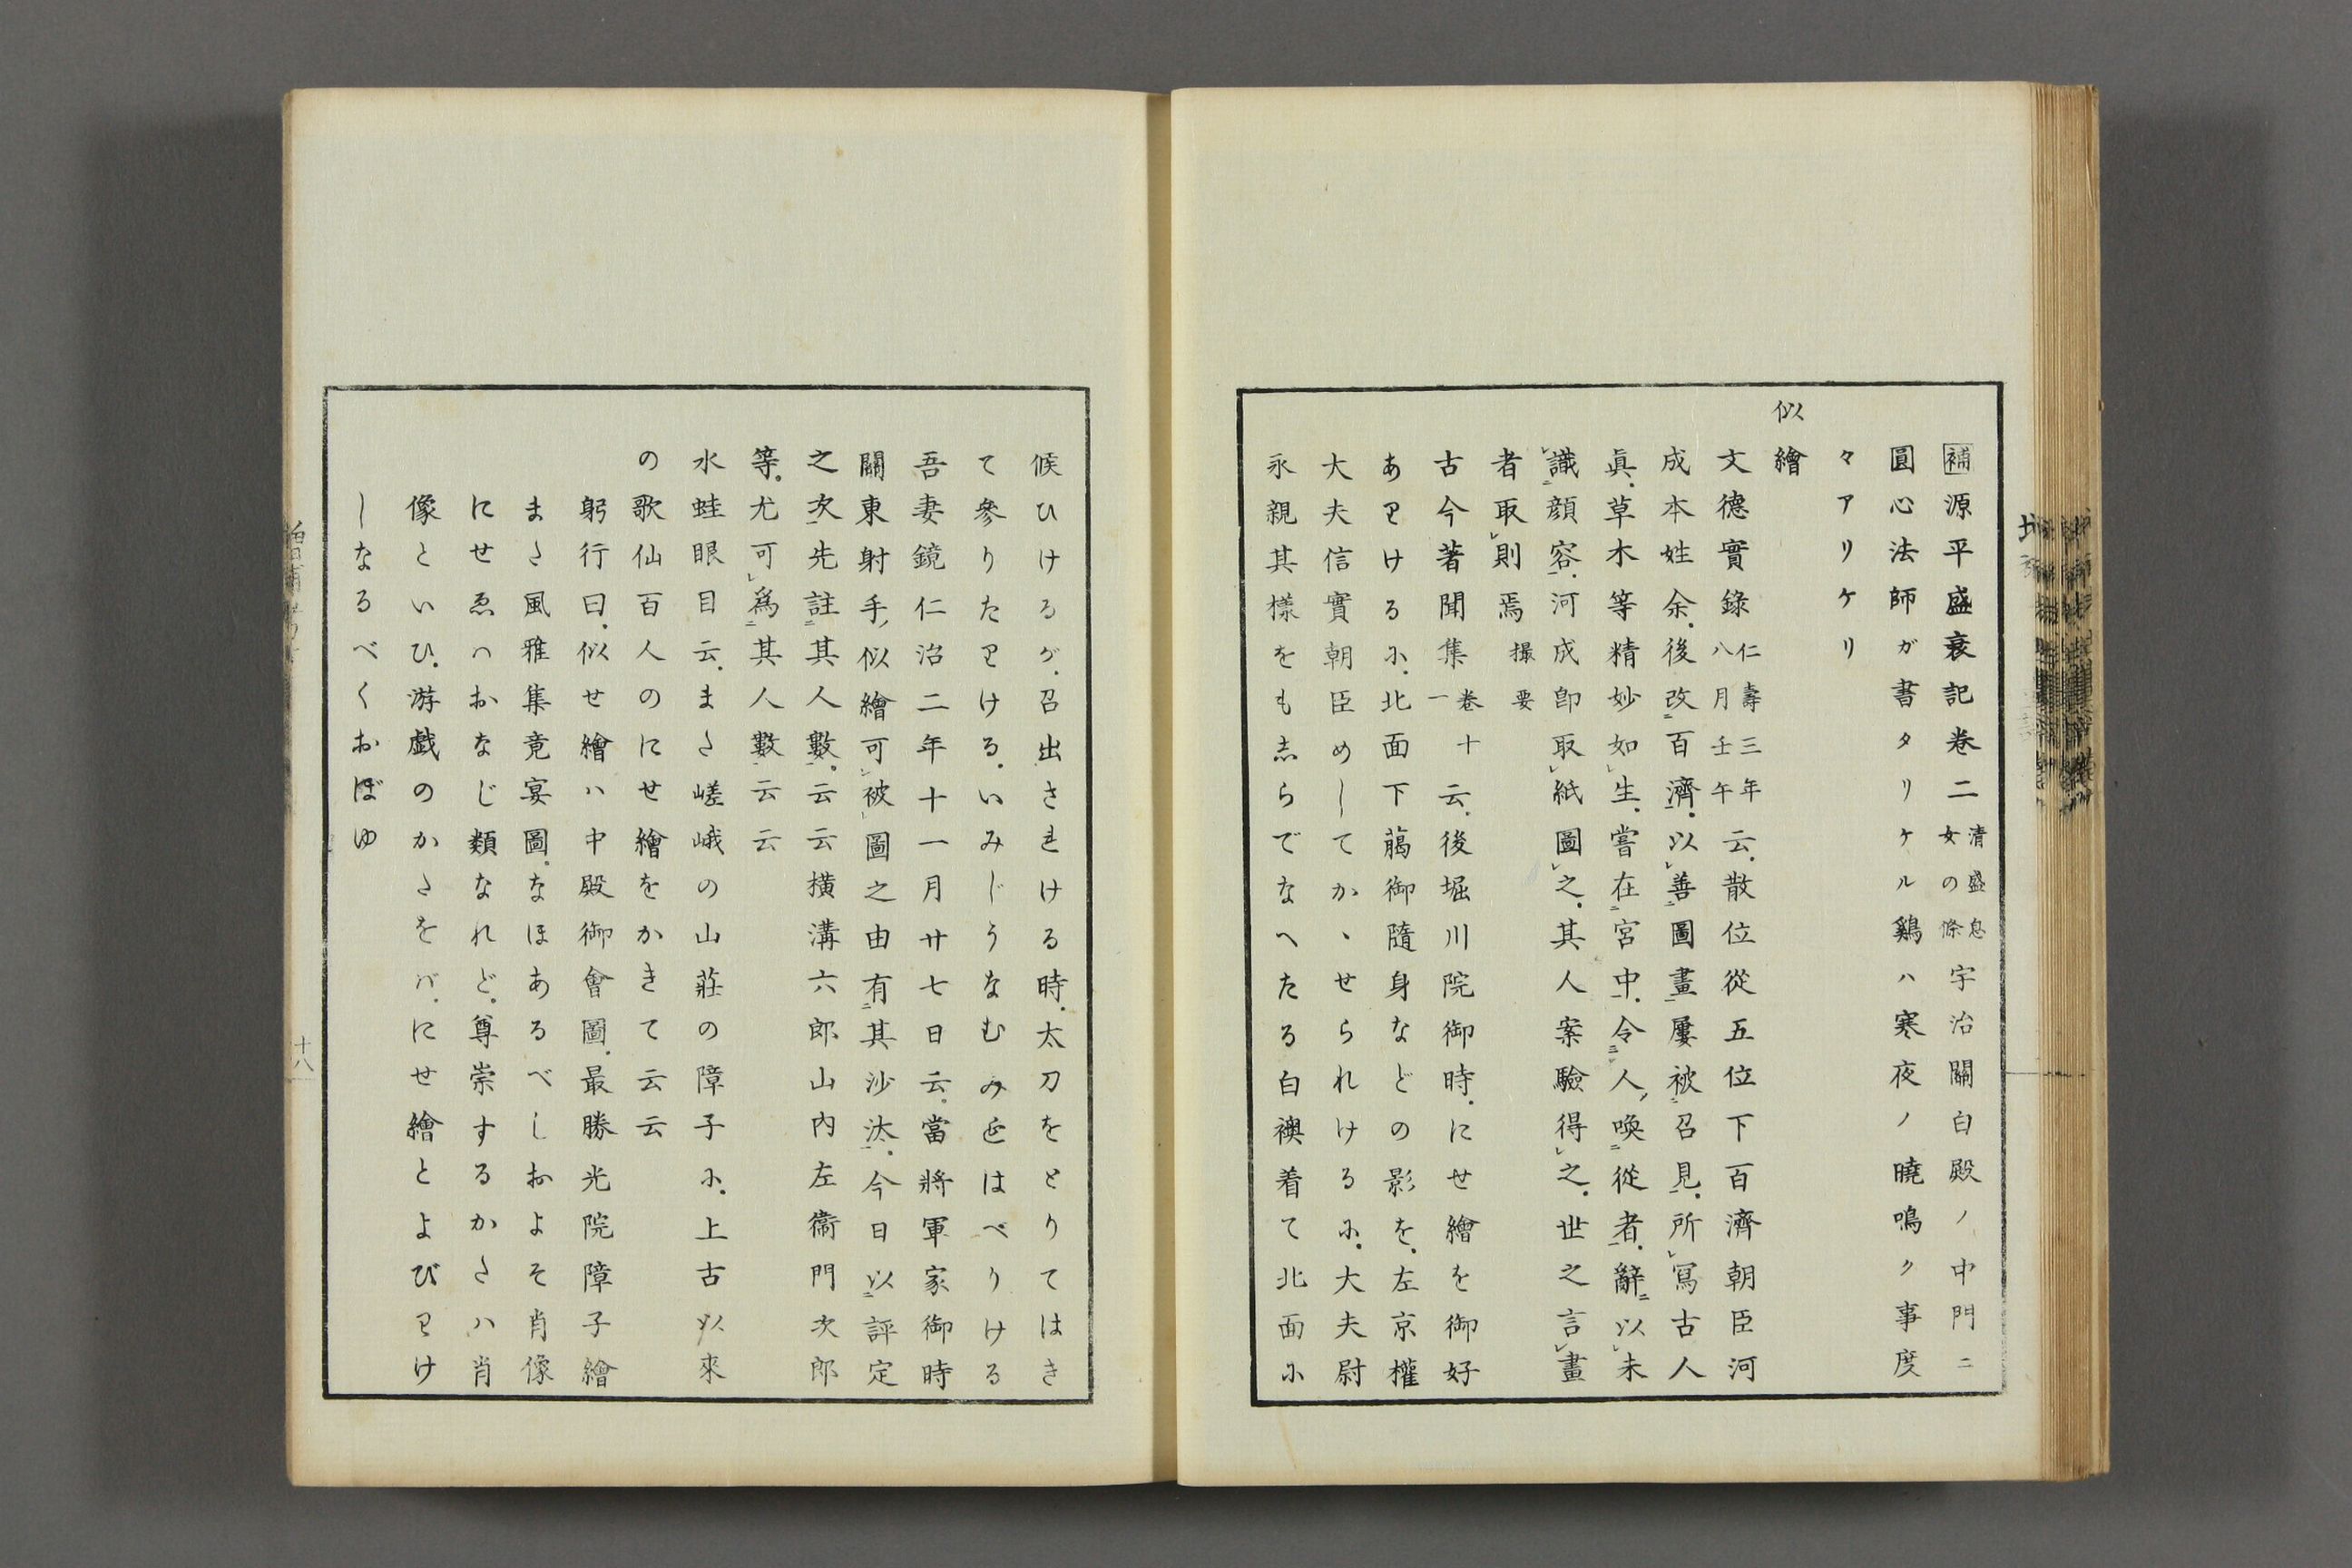 補源平盛衰記卷二清盛息女の條宇治關白殿ノ中門ニ
圓心法師ガ書タリケル鷄ハ寒夜ノ曉鳴ク事度
々アリケリ
似繪
文德實錄仁壽三年八月壬午云。散位從五位下百濟朝臣河
成本姓余。後改二百濟一。以レ善二圖畫一屢被二召見一。所レ寫古人
眞。草木等精妙如レ生。嘗在二宮中一。令三人喚二從者一。辭二以レ未レ
識二顏容一。河成卽取レ紙圖レ之。其人案驗得レ之。世之言レ畫
者取レ則焉撮要
古今著聞集卷十一云。後堀川院御時。にせ繪を御好
ありけるに。北面下﨟御隨身などの影を。左京權
大夫信實朝臣めしてかゝせられけるに。大夫尉
永親其樣をも志らでなへたる白襖着て北面に
候ひけるが。召出されける時。太刀をとりてはき
て參りたりける。いみじうなむみ江はべりける
吾妻鏡仁治二年十一月廿七日云。當將軍家御時
關東射手似繪可レ被レ圖之由有二其沙汰一。今日以二評定
之次一先註二其人數一。云云橫溝六郎山内左衞門次郎
等。尤可レ爲二其人數一云云
水蛙眼目云。また嵯峨の山莊の障子に。上古以來
の歌仙百人のにせ繪をかきて云云
躬行曰。似せ繪ハ中殿御會圖。最勝光院障子繪
また風雅集竟宴圖。なほあるべしおよそ肖像
にせゑハおなじ類なれど。尊崇するかたハ肖
像といひ。游戲のかたをバ。にせ繪とよびわけ
しなるべくおぼゆ
十八